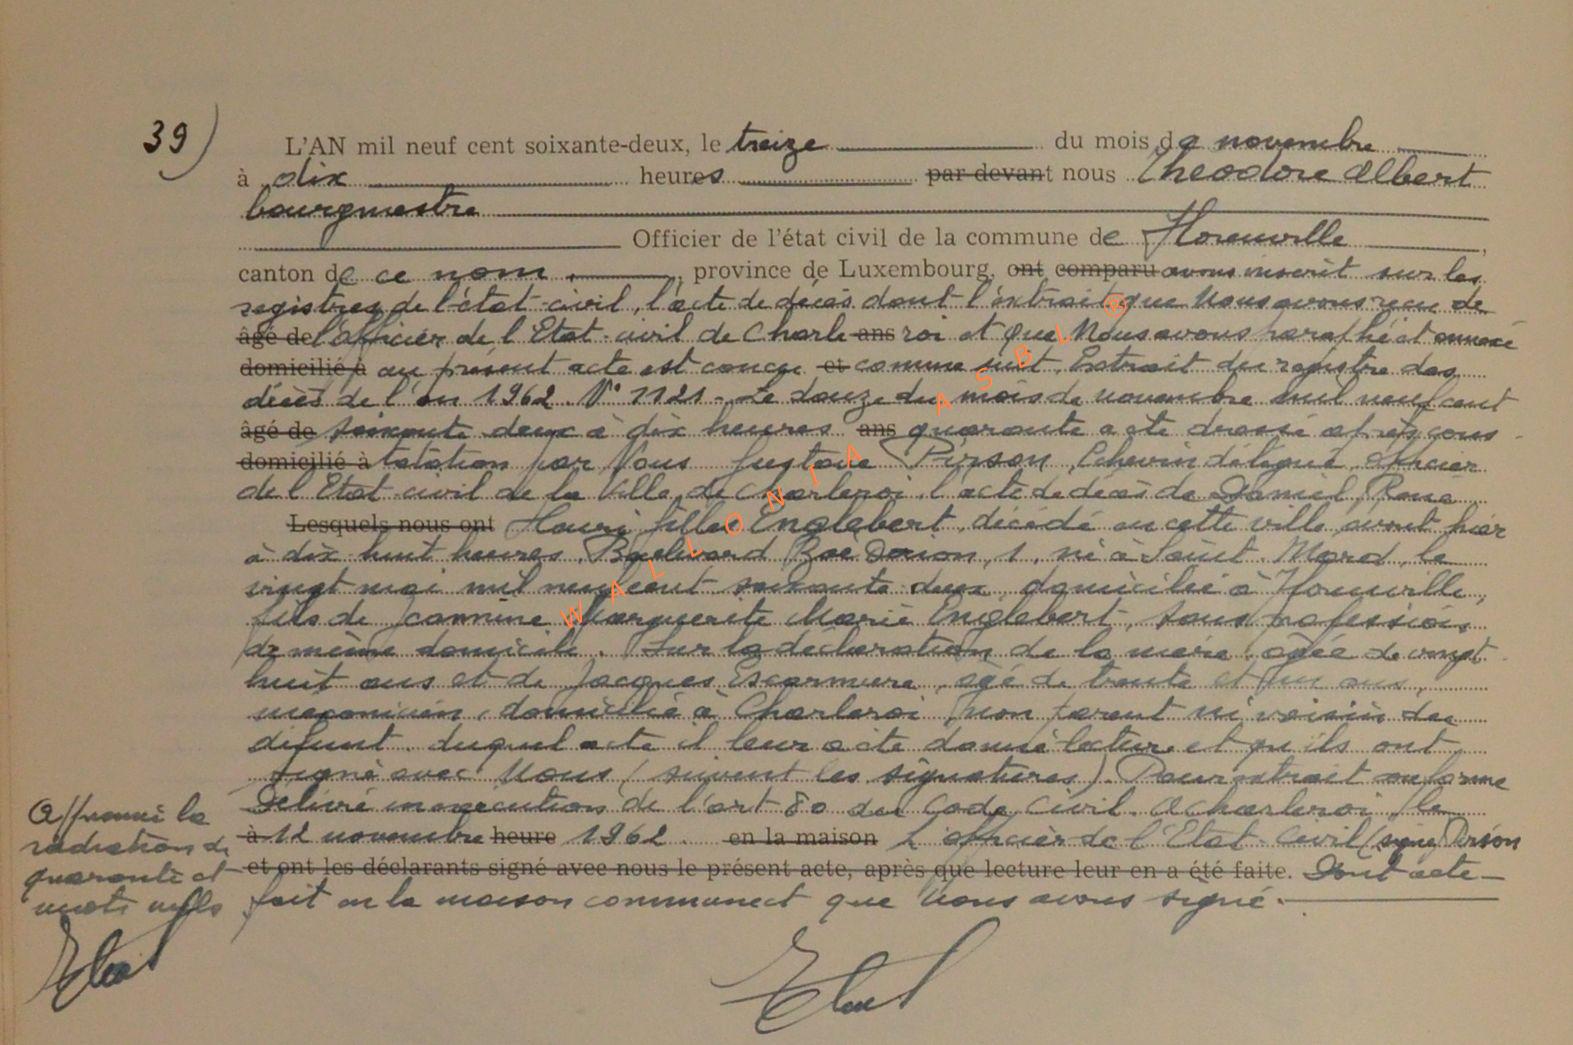 39)
L'AN mil neuf cent soixante-deux, le treize du mois de novembre
à dix heures par devant nous Théodore Albert
bourgmestre
Officier de l'état civil de la commune de Florenville,
canton de ce nom, province de Luxembourg, ont comparu avons inscrit sur les
registres de l'état-civil, l'acte de décès dont l'extrait que Nous avons reçu de
âgé de l'Officier de l'Etat-civil de Charle ans roi et que Nous avons paraphé et annexé
domicilié à au présent acte est conçu et comme suit. Extrait du registre des
décès de l'an 1962. N° 1121 - Le douze du mois de novembre mil neuf cent
âgé de soixante deux à dix heures ans quarante a été dressé après cons
domicilié à tatation par Nous Gustave Pirson, Echevin délégué, officier
de l'Etat-civil de la Ville de Charleroi, l'acte de décès de Daniel René
Lesquels nous ont Henri Gilles Englebert, décédé en cette ville avant hier
à dix huit heures, Boulevard Zoé Drion, 1, né à Saint-Mard, le
vingt mai mil neuf cent soixante deux, domicilié à Florenville,
fils de Jeannine Marguerite Marie Englebert, sans profession,
de même domicile. Sur la déclaration de la mère, âgée de vingt
huit ans et de Jacques, âgé de trente et un ans,
mécanicien, domicilié à Charleroi, non parent ni voisin du
défunt, duquel acte il leur a été donné lecture et qu'ils ont
signé avec Nous (suivent les signatures). Pour extrait conforme
Délivré en exécution de l'art 80 du Code Civil. A Charleroi, le
à 12 novembre heure 1962. en la maison L'officier de l'Etat-Civil (signé) Pirson
et ont les déclarants signé avec nous le présent acte, après que lecture leur en a été faite. Dont acte
fait en la maison communect que Nous avons signé.
Approuvé la
radiation de
quarante et
mots nuls
WALLONIA ASBL